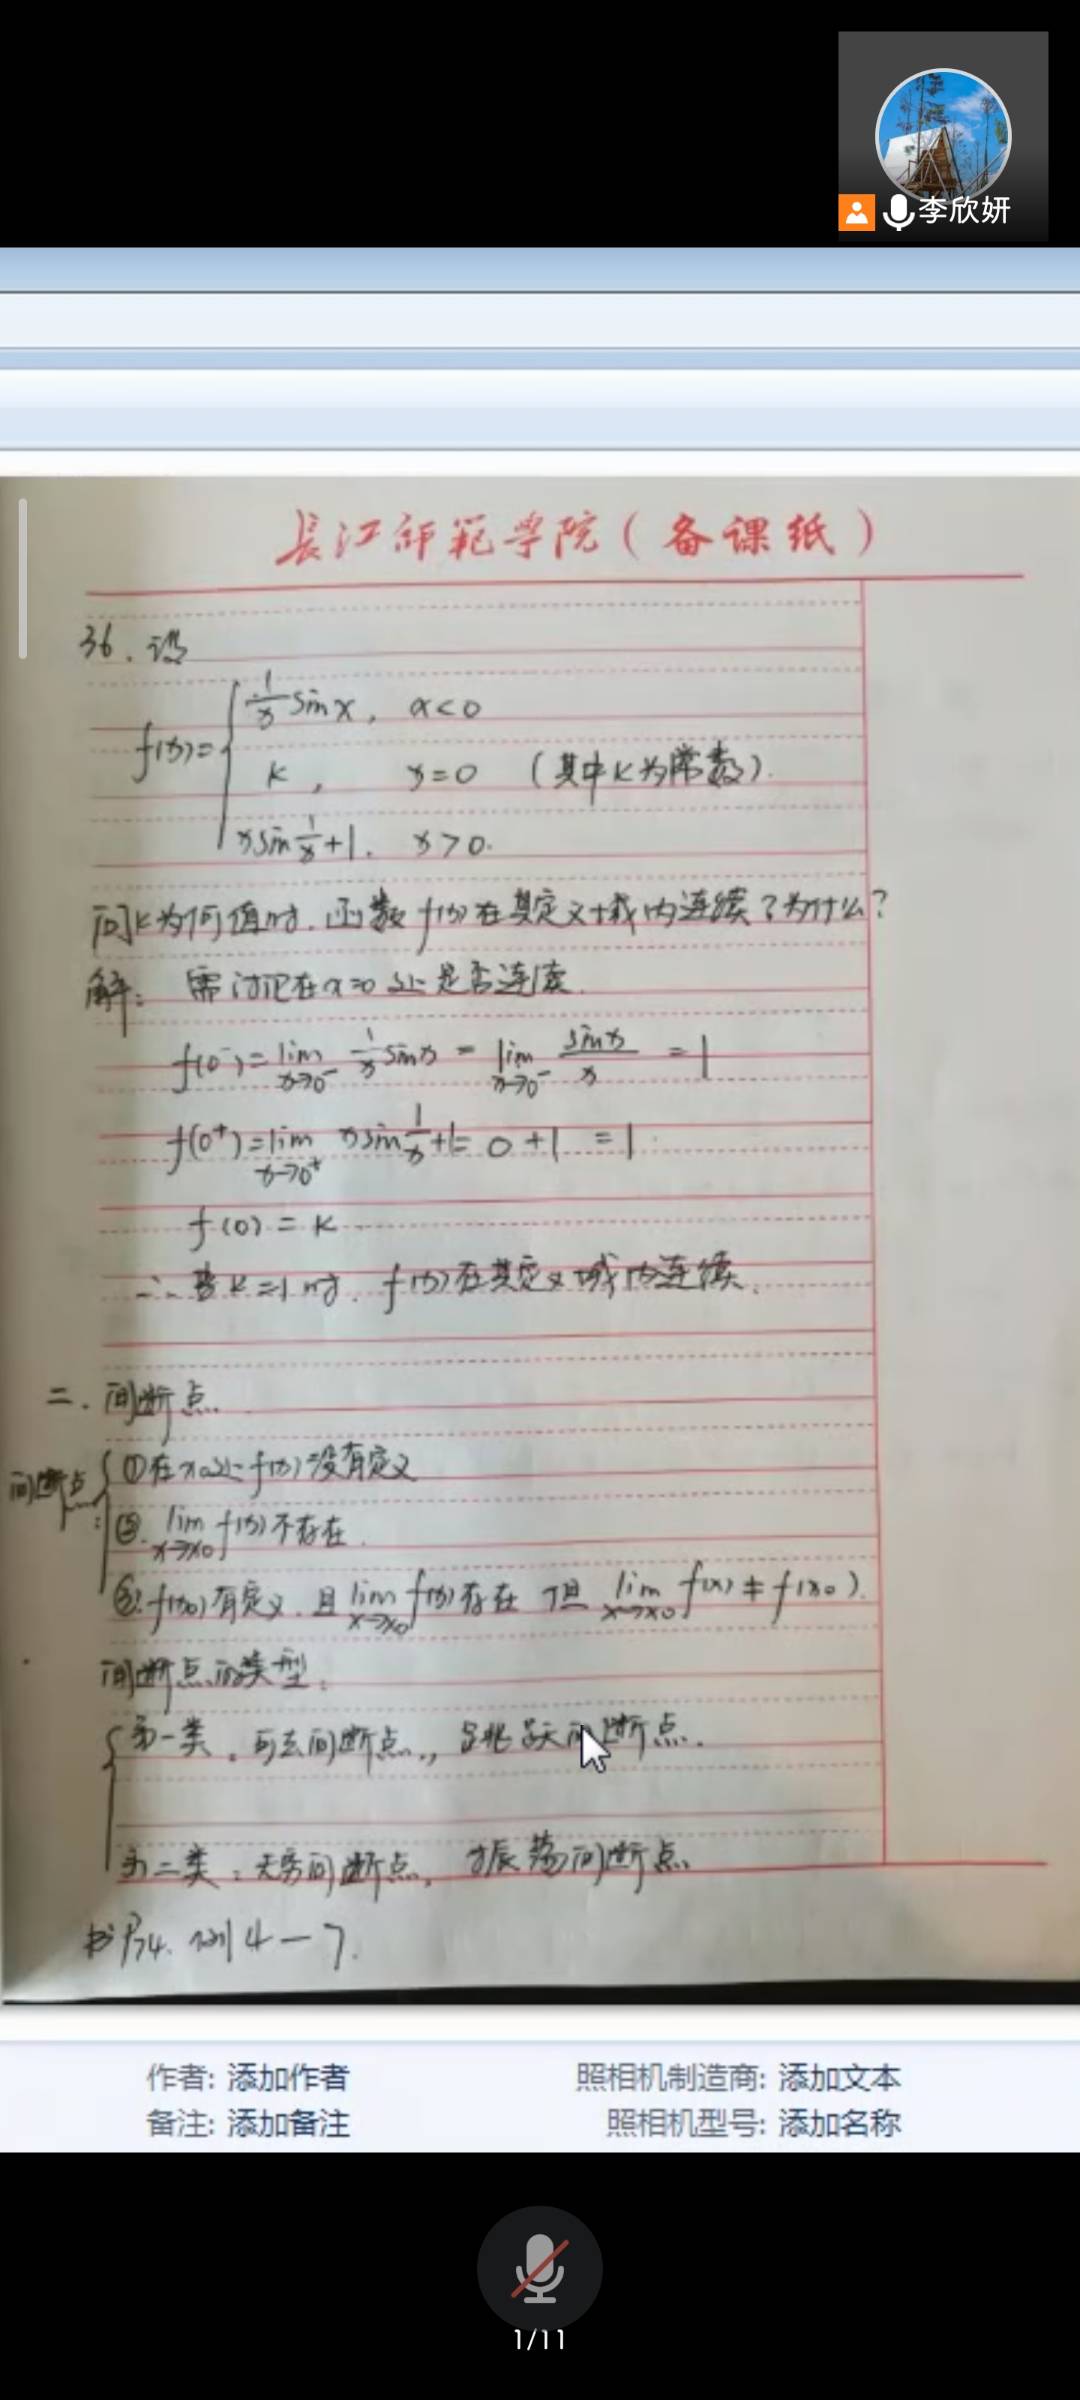 李欣妍
長江師範学院(备课纸)
36.设
f(x)= { 1/x sinx, x<0
k, x=0 (其中k为常数).
xsin 1/x +1. x>0.
问k为何值时.函数f(x)在其定义域内连续?为什么?
解: 需讨论在x=0处是否连续.
f(0⁻)=lim x→0⁻ 1/x sinx = lim x→0⁻ sinx/x = 1
f(0⁺)=lim x→0⁺ xsin 1/x +1= 0+1 =1.
f(0)=k
∴当k=1时.f(x)在其定义域内连续.
二.间断点.
间断点: { ①在x₀处f(x)没有定义
②.lim x→x₀ f(x)不存在.
③.f(x₀)有定义.且lim x→x₀ f(x)存在 但 lim x→x₀ f(x)≠f(x₀).
间断点的类型:
{ 第一类.可去间断点.,跳跃间断点.
第二类:无穷间断点,振荡间断点
书P74.例4—7.
作者: 添加作者 照相机制造商: 添加文本
备注: 添加备注 照相机型号: 添加名称
1/11